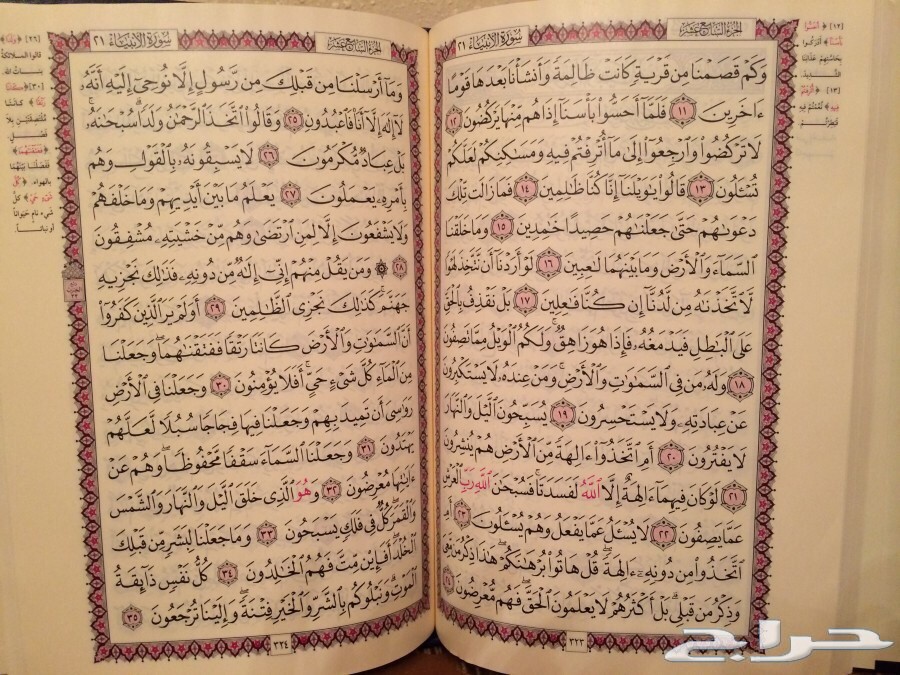 الجزء السابع عشر
سورة الأنبياء ٢١
وَكَمْ قَصَمْنَا مِن قَرْيَةٍ كَانَتْ ظَالِمَةً وَأَنشَأْنَا بَعْدَهَا قَوْمًا
ءَاخَرِينَ ١١ فَلَمَّآ أَحَسُّوا۟ بَأْسَنَآ إِذَا هُم مِّنْهَا يَرْكُضُونَ ١٢
لَا تَرْكُضُوا۟ وَٱرْجِعُوٓا۟ إِلَىٰ مَآ أُتْرِفْتُمْ فِيهِ وَمَسَٰكِنِكُمْ لَعَلَّكُمْ
تُسْـَٔلُونَ ١٣ قَالُوا۟ يَٰوَيْلَنَآ إِنَّا كُنَّا ظَٰلِمِينَ ١٤ فَمَا زَالَت تِّلْكَ
دَعْوَىٰهُمْ حَتَّىٰ جَعَلْنَٰهُمْ حَصِيدًا خَٰمِدِينَ ١٥ وَمَا خَلَقْنَا
ٱلسَّمَآءَ وَٱلْأَرْضَ وَمَا بَيْنَهُمَا لَٰعِبِينَ ١٦ لَوْ أَرَدْنَآ أَن نَّتَّخِذَ لَهْوًا
لَّٱتَّخَذْنَٰهُ مِن لَّدُنَّآ إِن كُنَّا فَٰعِلِينَ ١٧ بَلْ نَقْذِفُ بِٱلْحَقِّ
عَلَى ٱلْبَٰطِلِ فَيَدْمَغُهُۥ فَإِذَا هُوَ زَاهِقٌ ۚ وَلَكُمُ ٱلْوَيْلُ مِمَّا تَصِفُونَ
١٨ وَلَهُۥ مَن فِى ٱلسَّمَٰوَٰتِ وَٱلْأَرْضِ ۚ وَمَنْ عِندَهُۥ لَا يَسْتَكْبِرُونَ
عَنْ عِبَادَتِهِۦ وَلَا يَسْتَحْسِرُونَ ١٩ يُسَبِّحُونَ ٱلَّيْلَ وَٱلنَّهَارَ
لَا يَفْتُرُونَ ٢٠ أَمِ ٱتَّخَذُوٓا۟ ءَالِهَةً مِّنَ ٱلْأَرْضِ هُمْ يُنشِرُونَ
٢١ لَوْ كَانَ فِيهِمَآ ءَالِهَةٌ إِلَّا ٱللَّهُ لَفَسَدَتَا ۚ فَسُبْحَٰنَ ٱللَّهِ رَبِّ ٱلْعَرْشِ
عَمَّا يَصِفُونَ ٢٢ لَا يُسْـَٔلُ عَمَّا يَفْعَلُ وَهُمْ يُسْـَٔلُونَ ٢٣ أَمِ
ٱتَّخَذُوا۟ مِن دُونِهِۦٓ ءَالِهَةً ۖ قُلْ هَاتُوا۟ بُرْهَٰنَكُمْ ۖ هَٰذَا ذِكْرُ مَن مَّعِىَ
وَذِكْرُ مَن قَبْلِى ۗ بَلْ أَكْثَرُهُمْ لَا يَعْلَمُونَ ٱلْحَقَّ ۖ فَهُم مُّعْرِضُونَ ٢٤
٣٢٣
الجزء السابع عشر
سورة الأنبياء ٢١
وَمَآ أَرْسَلْنَا مِن قَبْلِكَ مِن رَّسُولٍ إِلَّا نُوحِىٓ إِلَيْهِ أَنَّهُۥ
لَآ إِلَٰهَ إِلَّآ أَنَا۠ فَٱعْبُدُونِ ٢٥ وَقَالُوا۟ ٱتَّخَذَ ٱلرَّحْمَٰنُ وَلَدًا ۗ سُبْحَٰنَهُۥ ۚ
بَلْ عِبَادٌ مُّكْرَمُونَ ٢٦ لَا يَسْبِقُونَهُۥ بِٱلْقَوْلِ وَهُم
بِأَمْرِهِۦ يَعْمَلُونَ ٢٧ يَعْلَمُ مَا بَيْنَ أَيْدِيهِمْ وَمَا خَلْفَهُمْ
وَلَا يَشْفَعُونَ إِلَّا لِمَنِ ٱرْتَضَىٰ وَهُم مِّنْ خَشْيَتِهِۦ مُشْفِقُونَ
٢٨ ۞ وَمَن يَقُلْ مِنْهُمْ إِنِّىٓ إِلَٰهٌ مِّن دُونِهِۦ فَذَٰلِكَ نَجْزِيهِ
جَهَنَّمَ ۚ كَذَٰلِكَ نَجْزِى ٱلظَّٰلِمِينَ ٢٩ أَوَلَمْ يَرَ ٱلَّذِينَ كَفَرُوٓا۟
أَنَّ ٱلسَّمَٰوَٰتِ وَٱلْأَرْضَ كَانَتَا رَتْقًا فَفَتَقْنَٰهُمَا ۖ وَجَعَلْنَا
مِنَ ٱلْمَآءِ كُلَّ شَىْءٍ حَىٍّ ۖ أَفَلَا يُؤْمِنُونَ ٣٠ وَجَعَلْنَا فِى ٱلْأَرْضِ
رَوَٰسِىَ أَن تَمِيدَ بِهِمْ وَجَعَلْنَا فِيهَا فِجَاجًا سُبُلًا لَّعَلَّهُمْ
يَهْتَدُونَ ٣١ وَجَعَلْنَا ٱلسَّمَآءَ سَقْفًا مَّحْفُوظًا ۖ وَهُمْ عَنْ
ءَايَٰتِهَا مُعْرِضُونَ ٣٢ وَهُوَ ٱلَّذِى خَلَقَ ٱلَّيْلَ وَٱلنَّهَارَ وَٱلشَّمْسَ
وَٱلْقَمَرَ ۖ كُلٌّ فِى فَلَكٍ يَسْبَحُونَ ٣٣ وَمَا جَعَلْنَا لِبَشَرٍ مِّن قَبْلِكَ
ٱلْخُلْدَ ۖ أَفَإِي۟ن مِّتَّ فَهُمُ ٱلْخَٰلِدُونَ ٣٤ كُلُّ نَفْسٍ ذَآئِقَةُ
ٱلْمَوْتِ ۗ وَنَبْلُوكُم بِٱلشَّرِّ وَٱلْخَيْرِ فِتْنَةً ۖ وَإِلَيْنَا تُرْجَعُونَ ٣٥
٣٢٤
حراج